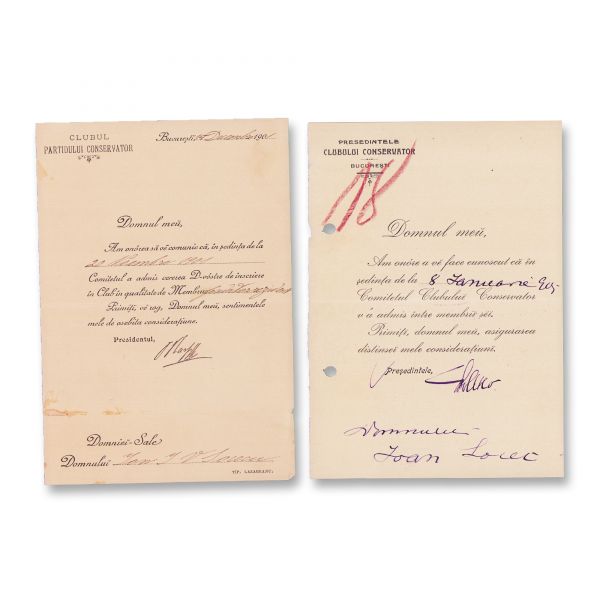 CLUBUL
PARTIDULUI CONSERVATOR
Bucureşti, Decembrie 1901
Domnul meŭ,
Am onórea să vĕ comunic că, în şedinţa de la
1901
Comitetul a admis cererea D-vóstre de înscriere
în Club în qualitate de Membru
Primiţi, vĕ rog, Domnul meŭ, sentimentele
mele de osebita consideraţiune.
Presidentul,
Domniei-Sale
Domnului Ion
TIP. LAZAREANU.
PREŞEDINTELE
CLUBULUI CONSERVATOR
BUCUREŞTI
18
Domnul meŭ,
Am onóre a vĕ face cunoscut că în
şedinţa de la 8 Ianuarie
Comitetul Clubului Conservator
v'a admis între membrii sĕi.
Primiţi, domnul meŭ, asigurarea
distinsei mele consideraţiuni.
Preşedintele,
Domnului
Ioan